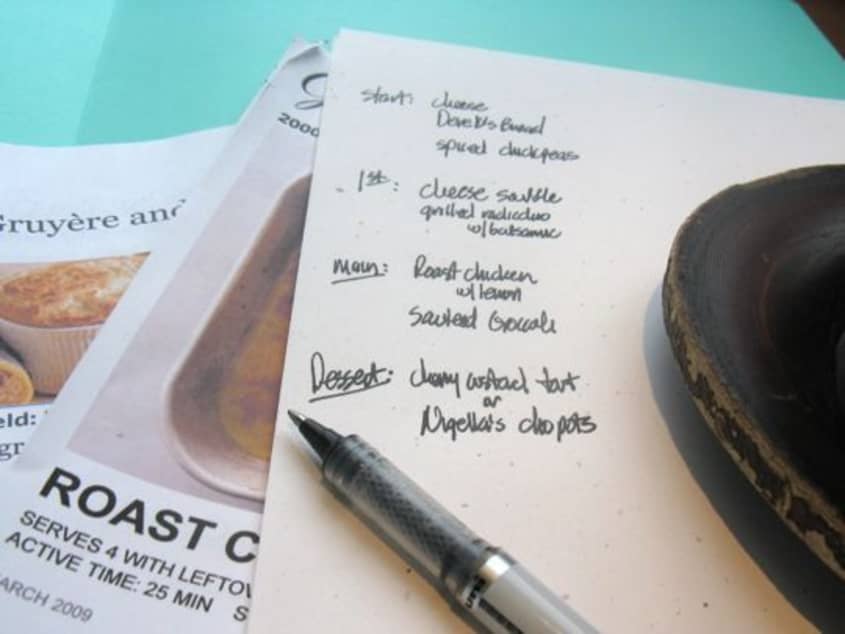 Start: cheese
Derek's Bread
spiced chickpeas
1st: cheese souffle
grilled radicchio
w/balsamic
Main: Roast chicken
w/ lemon
Sauteed broccoli
Dessert: cherry custard tart
or
Nigella's choc pots
Gruyère and
eld:
gr
2000
ROAST C
SERVES 4 WITH LEFTOV
ACTIVE TIME: 25 MIN S
ARCH 2009